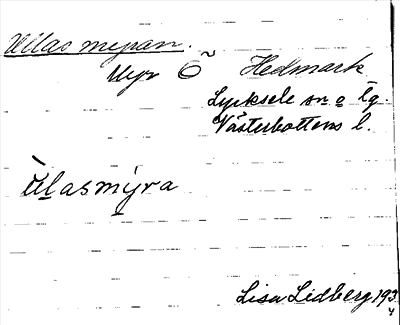 Ullasmyran.
Myr Ö Hedmark
Lycksele sn o tg.
Västerbottens l.
Ulasmýra
Lisa Lidberg 1934